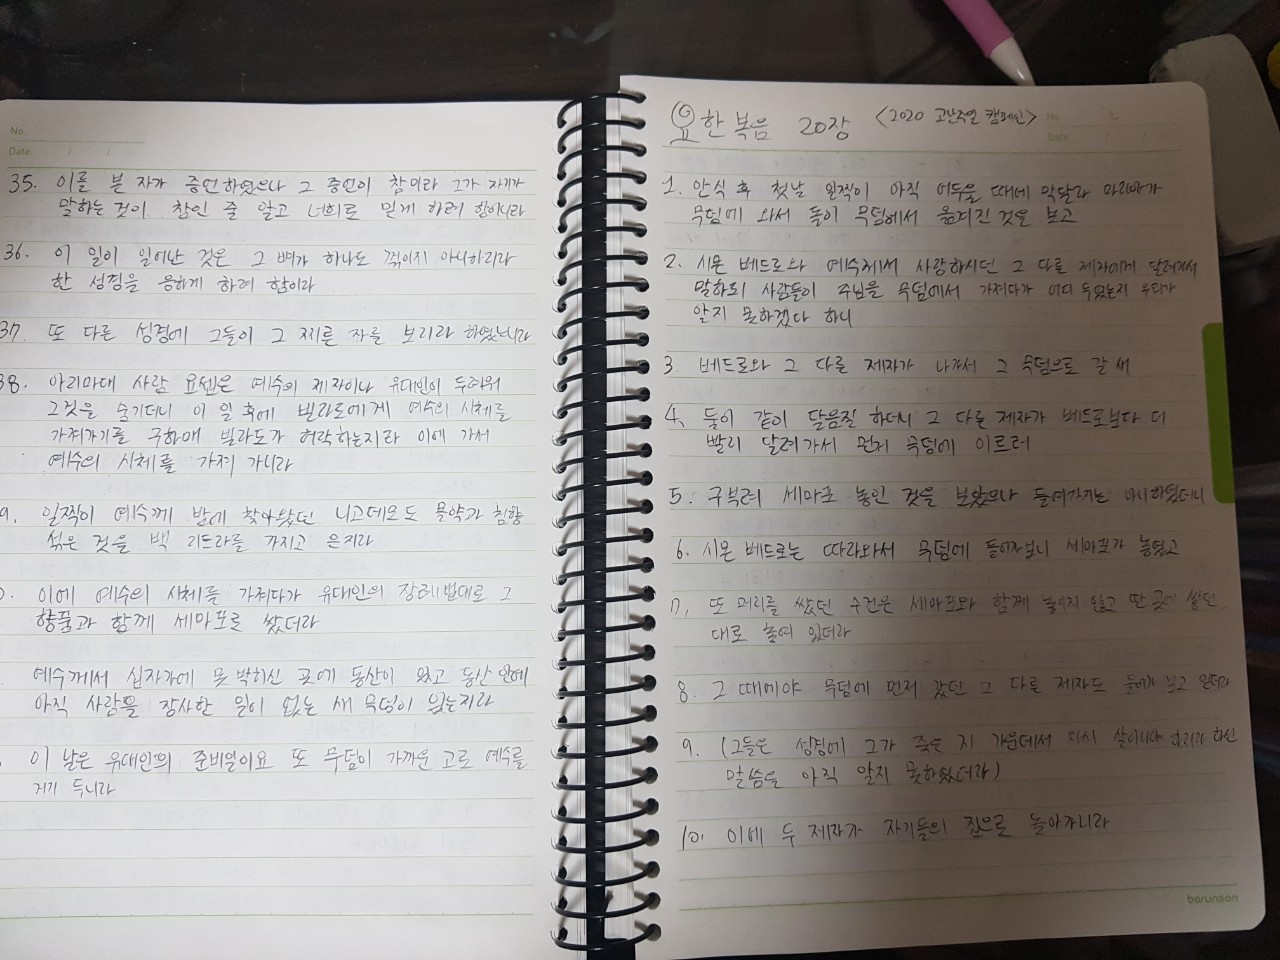 No.
Date. / /
35. 이를 본 자가 증언하였으니 그 증언이 참이라 그가 자기가
말하는 것이 참인 줄 알고 너희로 믿게 하려 함이니라
36. 이 일이 일어난 것은 그 뼈가 하나도 꺾이지 아니하리라
한 성경을 응하게 하려 함이라
37. 또 다른 성경에 그들이 그 찌른 자를 보리라 하였느니라
38. 아리마대 사람 요셉은 예수의 제자이나 유대인이 두려워
그것을 숨기더니 이 일 후에 빌라도에게 예수의 시체를
가져가기를 구하매 빌라도가 허락하는지라 이에 가서
예수의 시체를 가져 가니라
9. 일찍이 예수께 밤에 찾아왔던 니고데모도 몰약과 침향
섞은 것을 백 리트라를 가지고 온지라
이에 예수의 시체를 가져다가 유대인의 장례법대로 그
향품과 함께 세마포로 쌌더라
예수께서 십자가에 못 박히신 곳에 동산이 있고 동산 안에
아직 사람을 장사한 일이 없는 새 무덤이 있는지라
이 날은 유대인의 준비일이요 또 무덤이 가까운 고로 예수를
거기 두니라
요한복음 20장 <2020 고난주일 캠페인>
No.
Date / /
1. 안식 후 첫날 일찍이 아직 어두울 때에 막달라 마리아가
무덤에 와서 돌이 무덤에서 옮겨진 것을 보고
2. 시몬 베드로와 예수께서 사랑하시던 그 다른 제자에게 달려가서
말하되 사람들이 주님을 무덤에서 가져다가 어디 두었는지 우리가
알지 못하겠다 하니
3. 베드로와 그 다른 제자가 나가서 그 무덤으로 갈 새
4. 둘이 같이 달음질 하더니 그 다른 제자가 베드로보다 더
빨리 달려가서 먼저 무덤에 이르러
5. 구부려 세마포 놓인 것을 보았으나 들어가지는 아니하였더니
6. 시몬 베드로는 따라와서 무덤에 들어가 보니 세마포가 놓였고
7. 또 머리를 쌌던 수건은 세마포와 함께 놓이지 않고 딴 곳에 쌌던
대로 놓여 있더라
8. 그 때에야 무덤에 먼저 갔던 그 다른 제자도 들어가 보고 믿더라
9. (그들은 성경에 그가 죽은 자 가운데서 다시 살아나야 하리라 하신
말씀을 아직 알지 못하였더라)
10. 이에 두 제자가 자기들의 집으로 돌아가니라
barunson